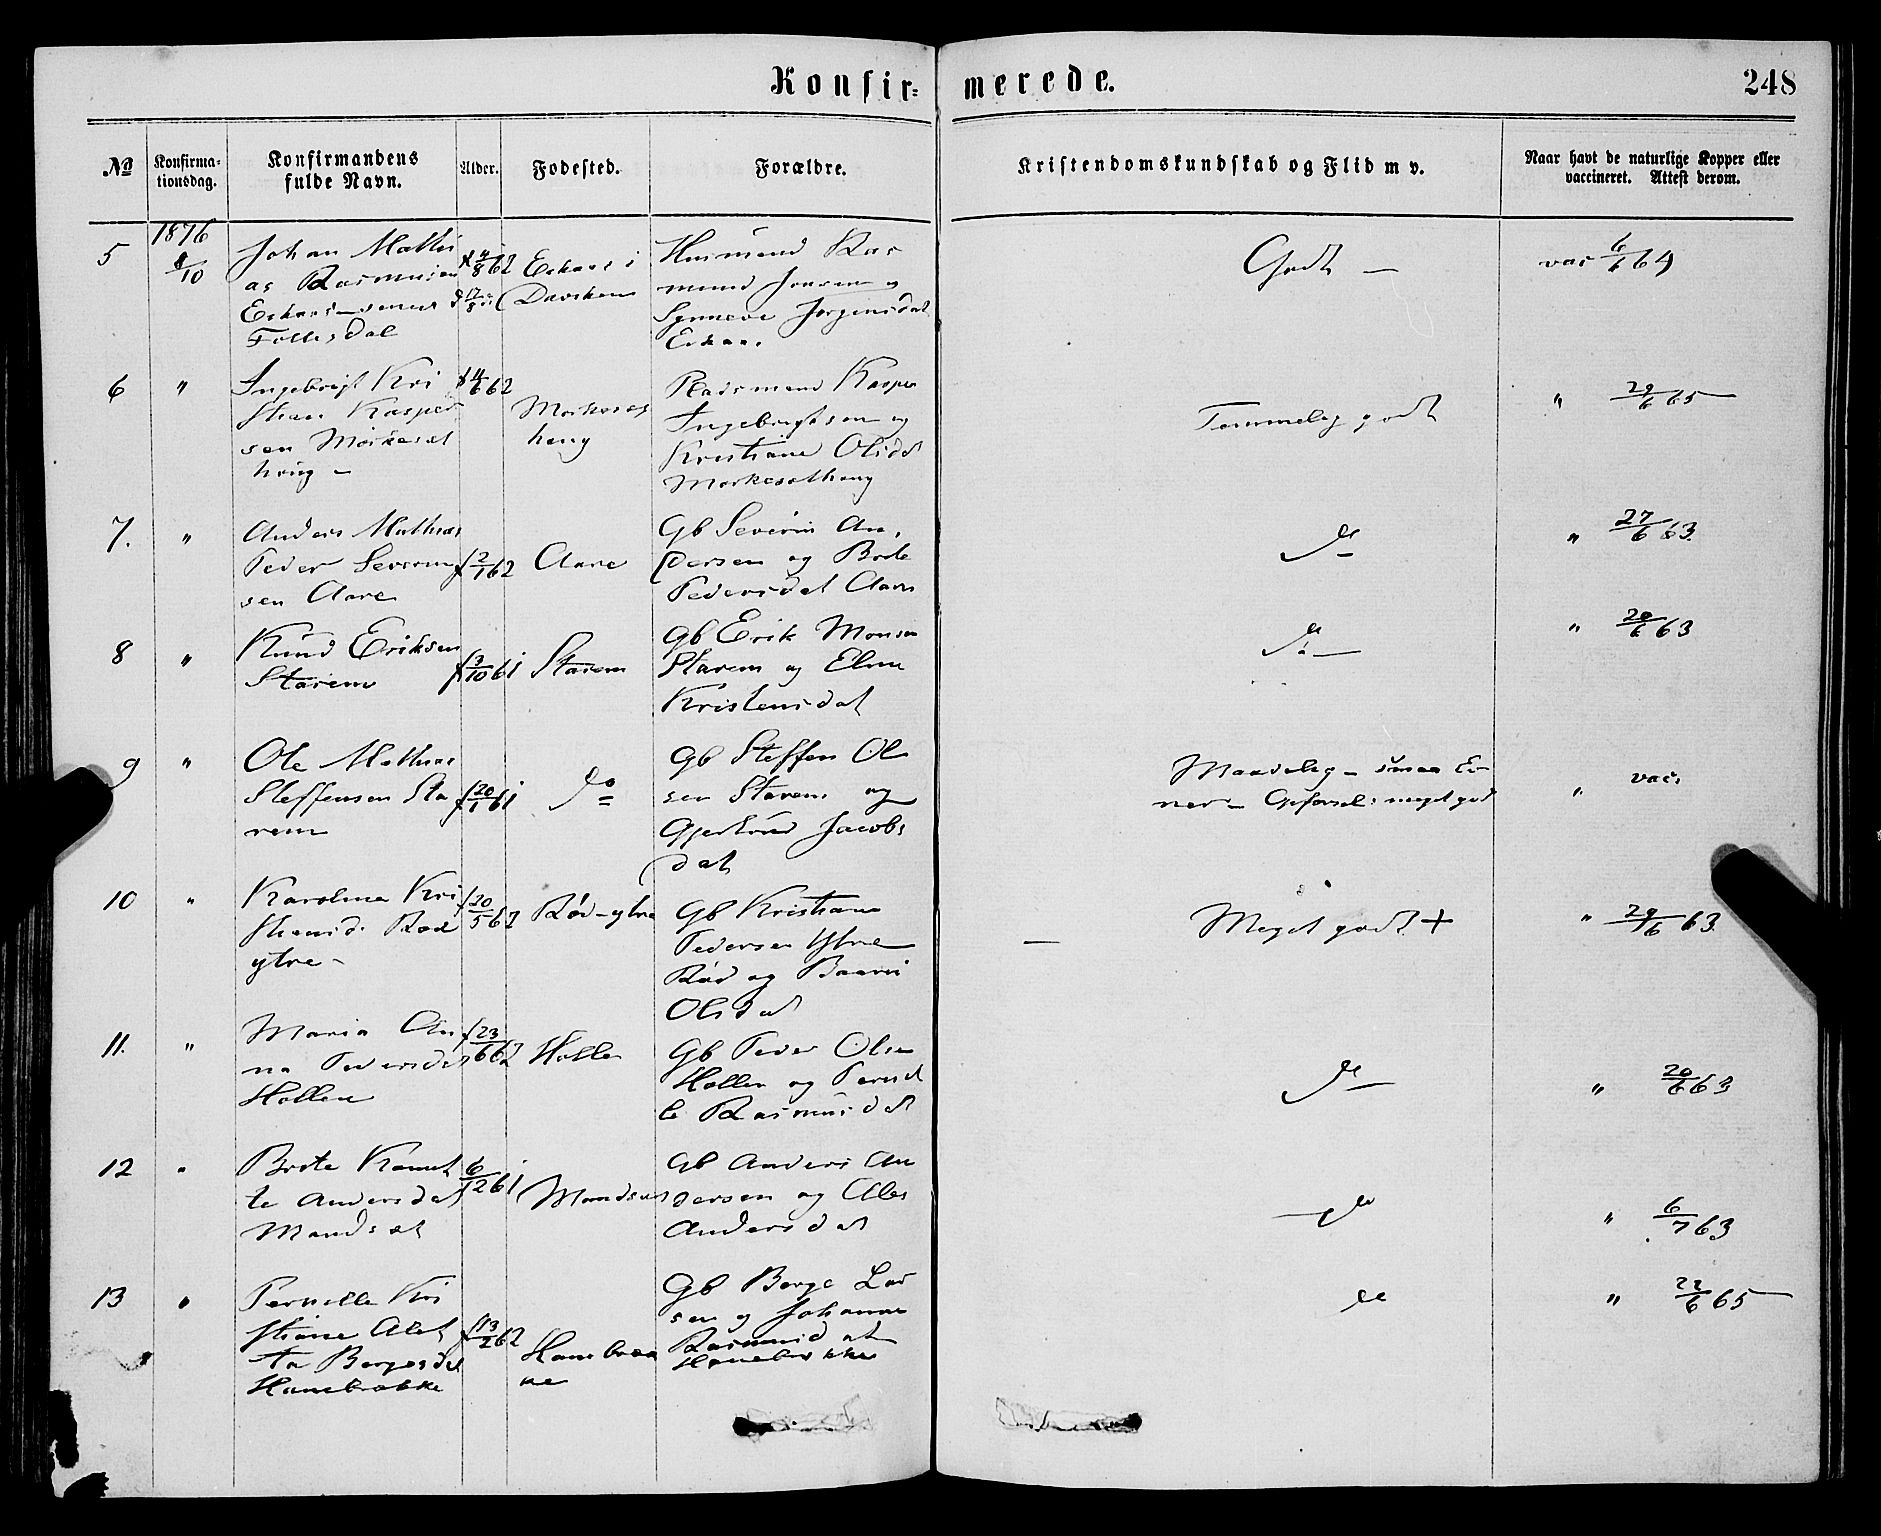 Konfir=
merede.
248
No
Konfirma-
tionsdag.
Konfirmandens
fulde Navn.
Alder.
Fødested.
Forældre.
Kristendomskundskab og Flid m v.
Naar havt de naturlige Kopper eller
vaccineret. Attest derom.
5
1876
8/10
Johan Mathi
as Rasmusen
Follesdal
f 4/8 62
d 17/8
Davik
Husmand Ras
mund
Synneve Jørgensdat
Godt —
vac 6/6 64
6
"
Ingebrigt Kri
stian Kasper
sen Mørkesæt
houg –
f 4/6 62
Morkesæt
houg
Pladsmand Kasper
Ingebrigtsen og
Kristiane Olsdt
Morkesæthoug
Temmelig godt
" 29/6 65
7.
"
Anders Mathias
Peder Severin
sen Aare
f 2/1 62
Aare
Gb Severin An,
dersen og Brite
Pedersdat Aare
do
" 27/6 63.
8
"
Knud Eriksen
Starem
f 3/10 61
Starem
Gb Erik Monsen
Starem og Elen
Kristensdat
do —
" 20/6 63
9
"
Ole Mathias
Steffensen Sta
rem
f 20/1 61
do
Gb Steffen Ol
sen Starem og
Gjertrud Jacobs
dat
Maadelig – smaa Ev-
ner – Opførsel: meget god
" vac.
10
"
Karolina Kri
stiansd. Rød
ytre –
f 20/5 62
Rød – ytre
Gb Kristian
Pedersen Ytre
Rød og Baarni
Olsdat
— Meget godt +
" 29/6 63.
11.
"
Maria An
na Pedersdat
Hollen
f 23/6 62
Holle
Gb Peder Olsen
Hollen og Pernil
le Rasmusdat
do —
" 20/6 63
12
"
Brite Kanut
te Andersdat
Mandsæt
6/12 61
Mandsæt
Gb Anders An
dersen og Ales
Andersdat
— do
" 6/7 63
13
"
Pernille Kri
stiane Alet
ta Børgesdat
Hanebrække
f 13/2 62
Hanebræk
ke
Gb Børge Lar
sen og Johanne
Rasmusdat
Hanebrække
do
" 22/6 65